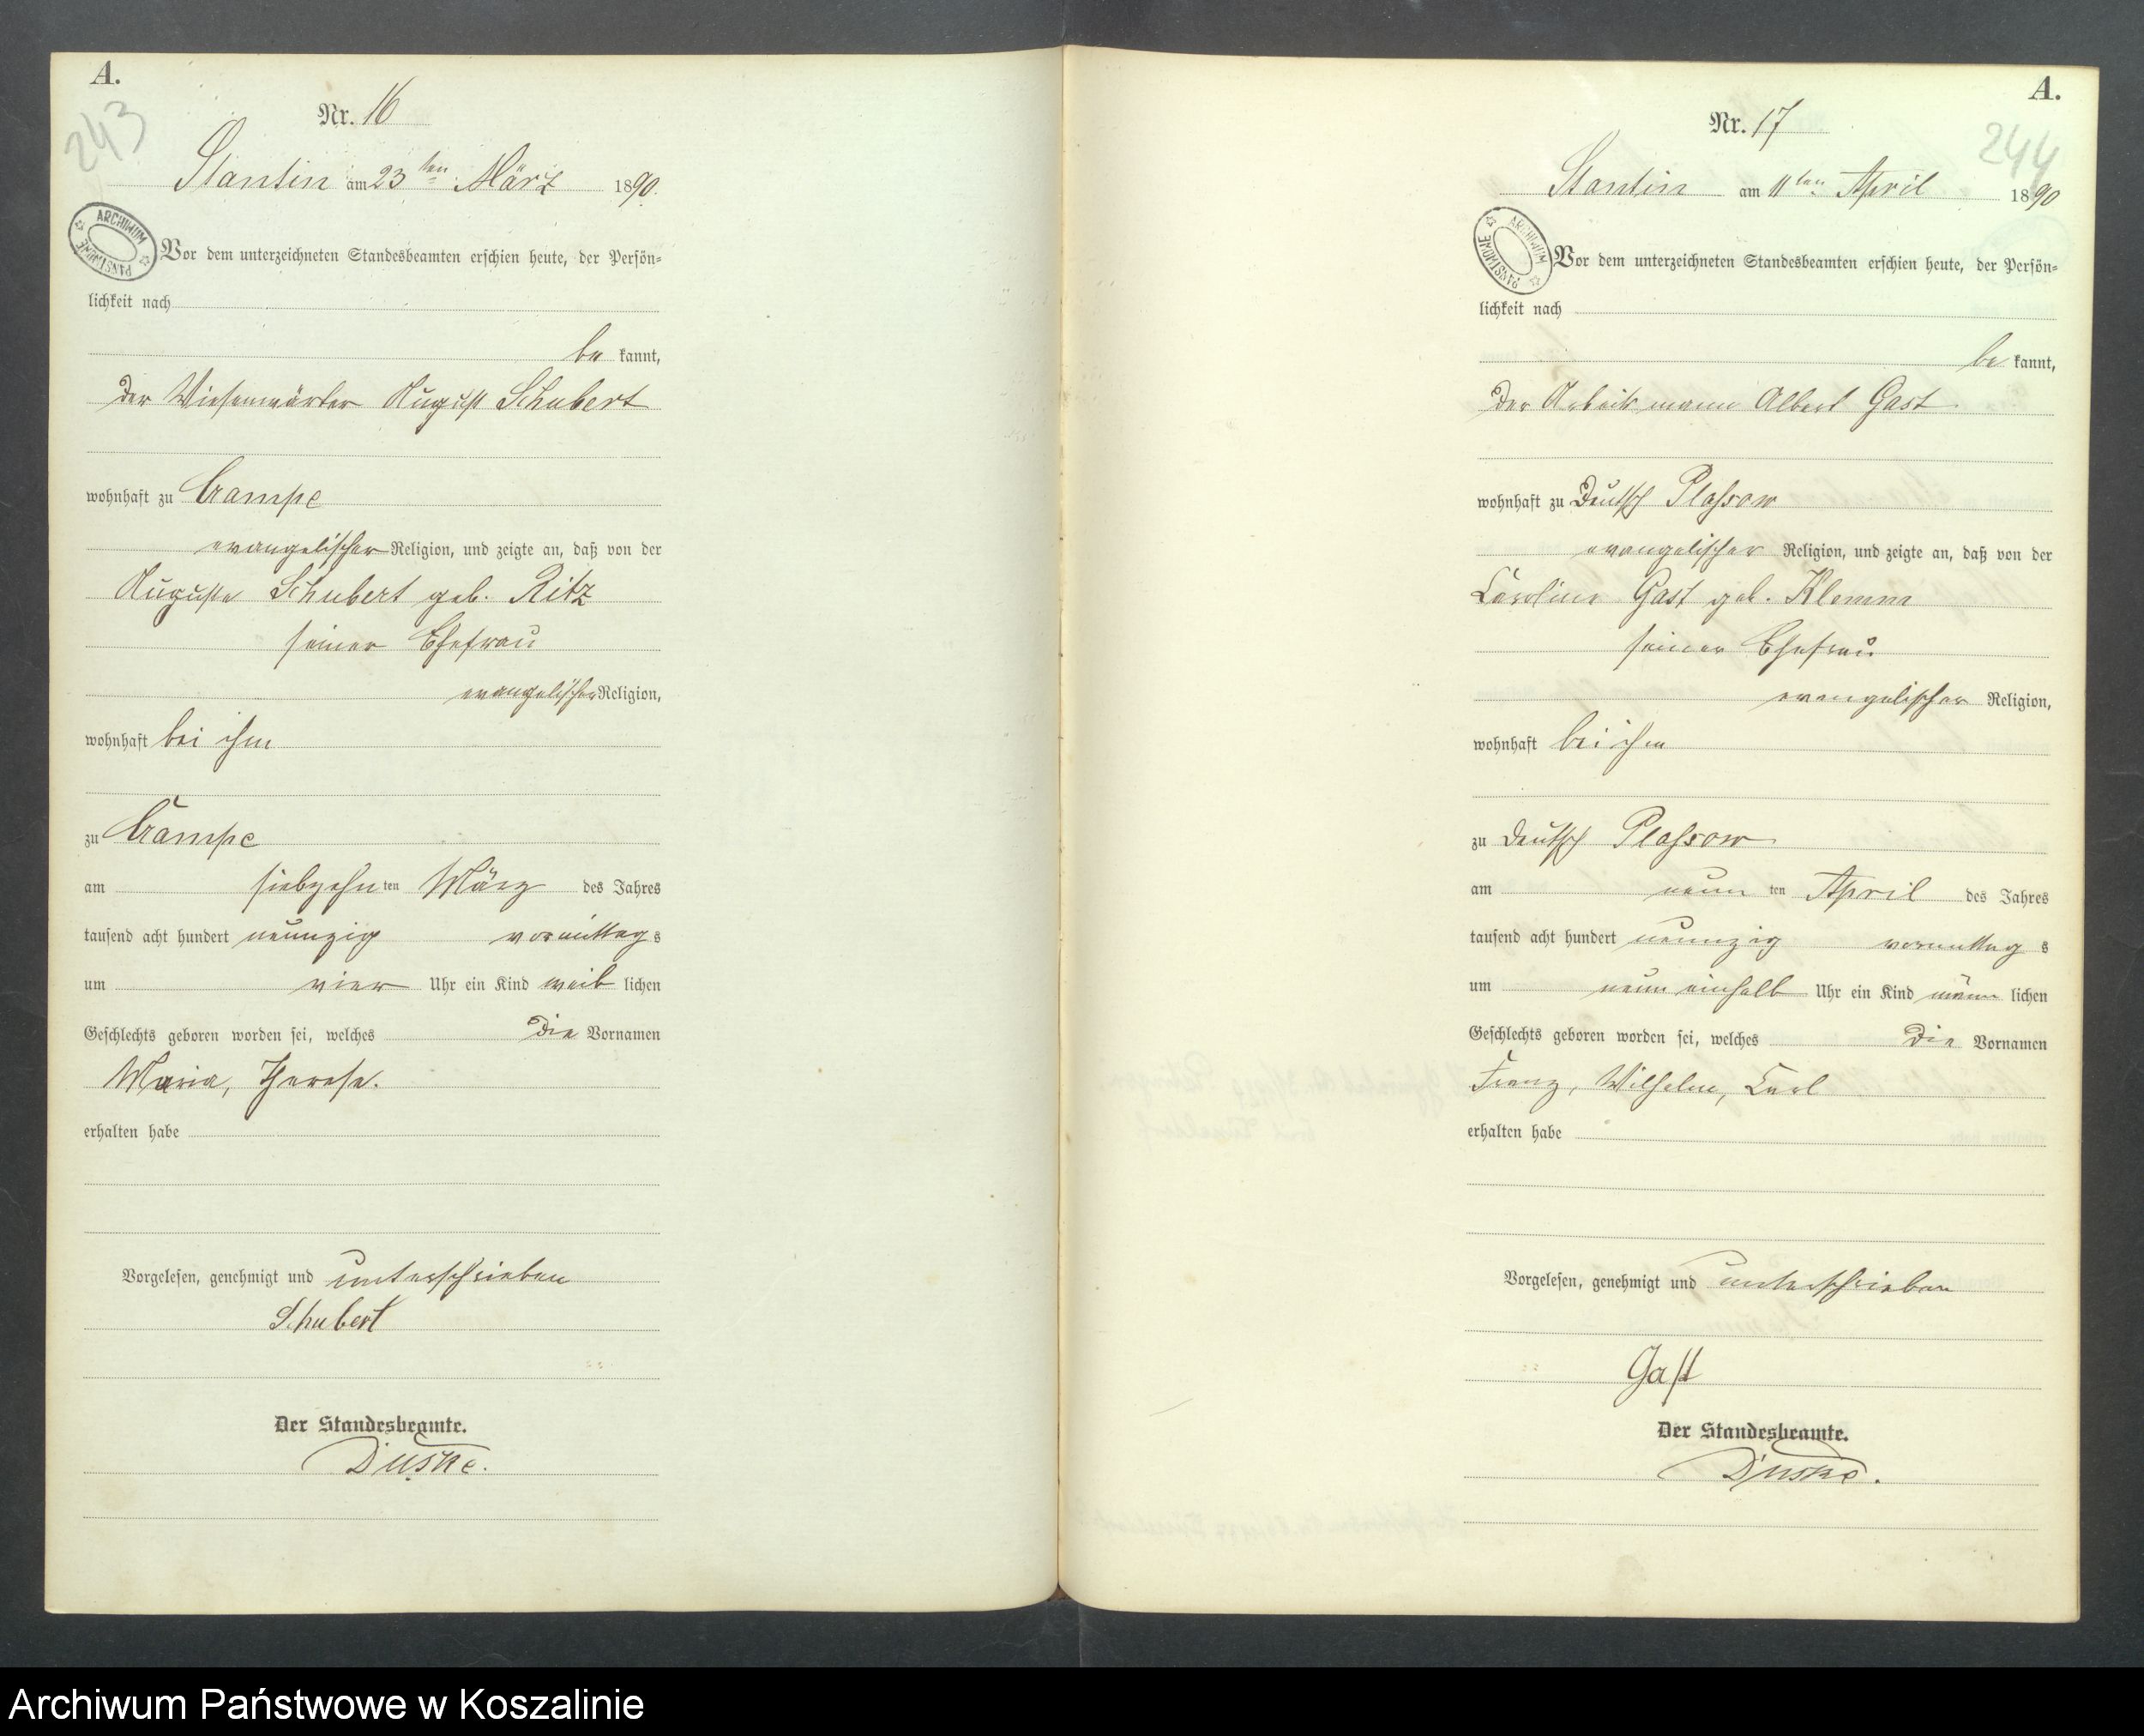 A.
243
Nr. 16
Stantin am 23ten März 1890.
ARCHIWUM PAŃSTWOWE
Vor dem unterzeichneten Standesbeamten erschien heute, der Persön-
lichkeit nach
be kannt,
der Wiesenwärter August Schubert
wohnhaft zu Crampe
evangelischer Religion, und zeigte an, daß von der
Auguste Schubert geb. Ritz
seiner Ehefrau
evangelischer Religion,
wohnhaft bei ihm
zu Crampe
am siebzehn ten März des Jahres
tausend acht hundert neunzig vormittag s
um vier Uhr ein Kind weib lichen
Geschlechts geboren worden sei, welches die Vornamen
Maria, Therese.
erhalten habe
Vorgelesen, genehmigt und unterschrieben
Schubert
Der Standesbeamte.
Duske.
A.
244
Nr. 17
Stantin am 11ten April 1890
ARCHIWUM PAŃSTWOWE
Vor dem unterzeichneten Standesbeamten erschien heute, der Persön-
lichkeit nach
be kannt,
der Arbeitsmann Albert Gast
wohnhaft zu Deutsch Plassow
evangelischer Religion, und zeigte an, daß von der
Caroline Gast geb. Klemm
seiner Ehefrau
evangelischer Religion,
wohnhaft bei ihm
zu Deutsch Plassow
am neun ten April des Jahres
tausend acht hundert neunzig vormittag s
um neun einhalb Uhr ein Kind männ lichen
Geschlechts geboren worden sei, welches die Vornamen
Franz, Wilhelm, Carl
erhalten habe
Vorgelesen, genehmigt und unterschrieben
Gast
Der Standesbeamte.
Duske.
Archiwum Państwowe w Koszalinie